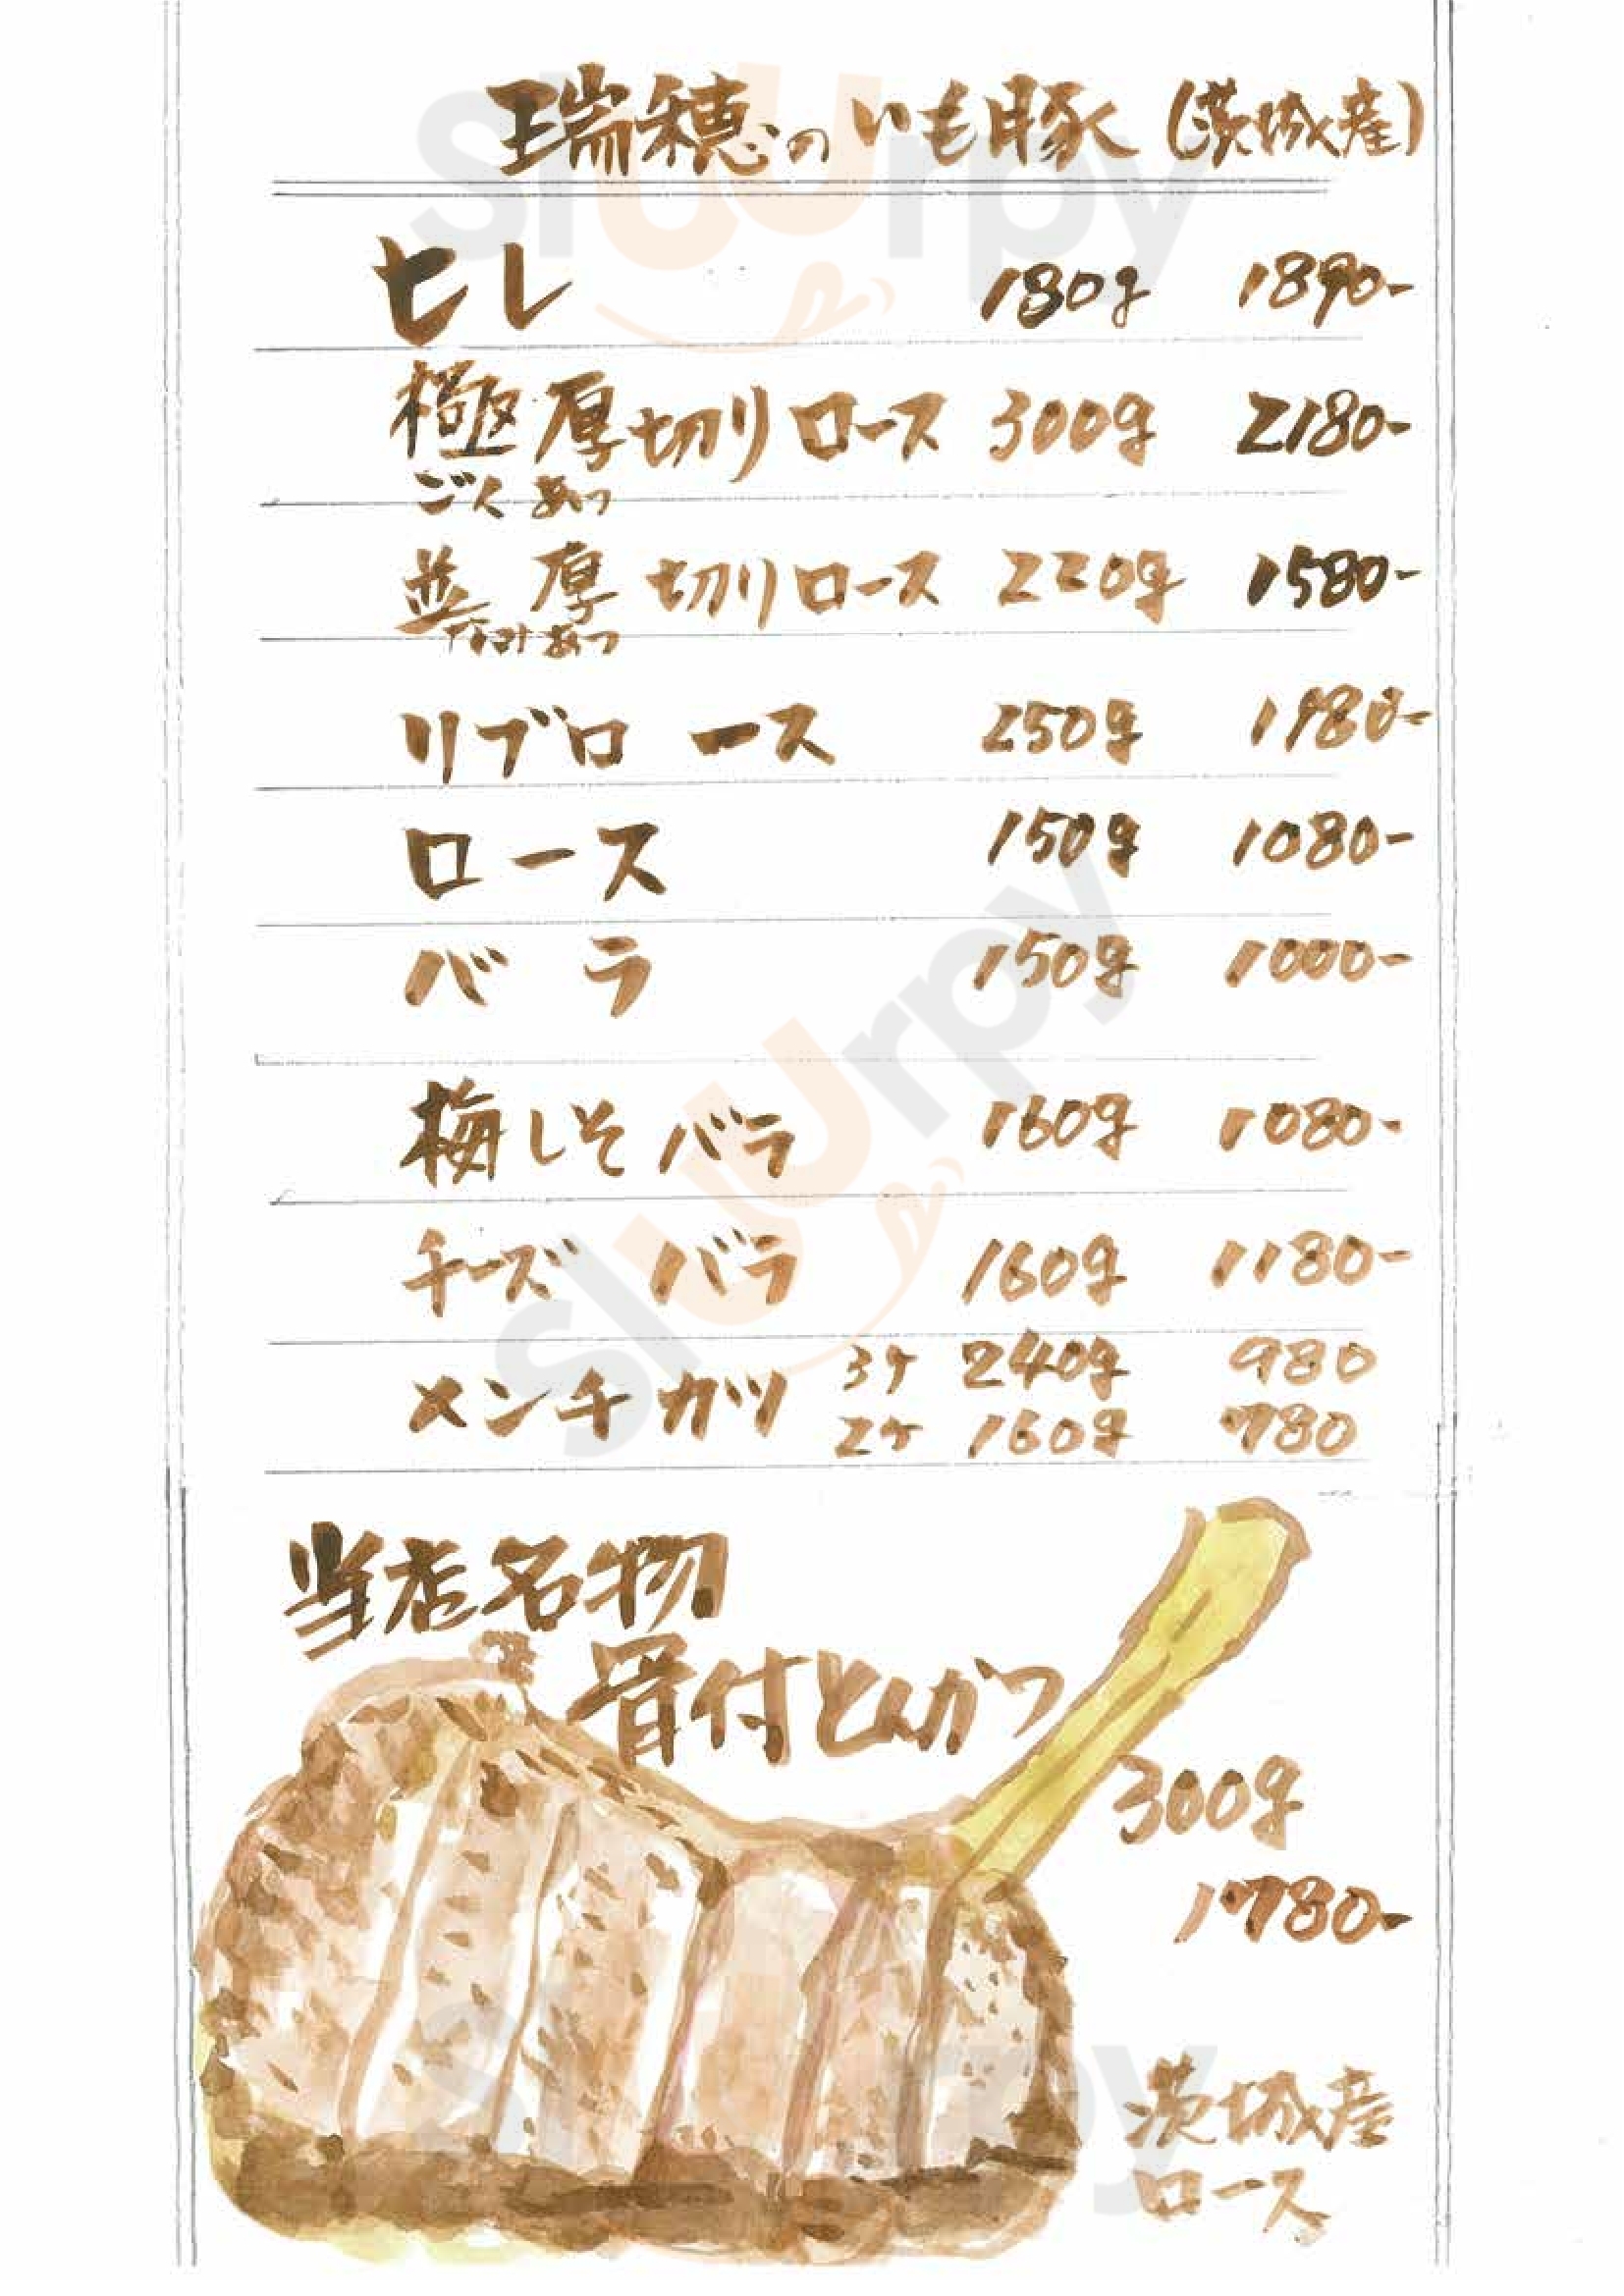 瑞穂のいも豚 (茨城産)
ヒレ 180g 1890-
極厚切りロース 300g 2180-
ごくあつ
並厚切りロース 220g 1580-
なみあつ
リブロース 250g 1980-
ロース 150g 1080-
バラ 150g 1000-
梅しそバラ 160g 1080-
チーズバラ 160g 1180-
メンチカツ 3ケ 240g 980
2ケ 160g 780
当店名物
骨付とんかつ
300g
1780-
茨城産
ロース
Sluurpy
Sluurpy
Sluurpy